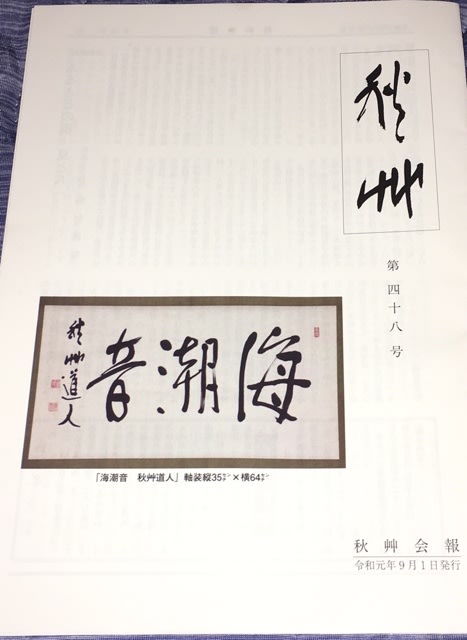 秋艸
第四十八号
海潮音
秋艸道人
「海潮音　秋艸道人」軸装縦35㌢×横64㌢
秋艸会報
令和元年9月1日発行